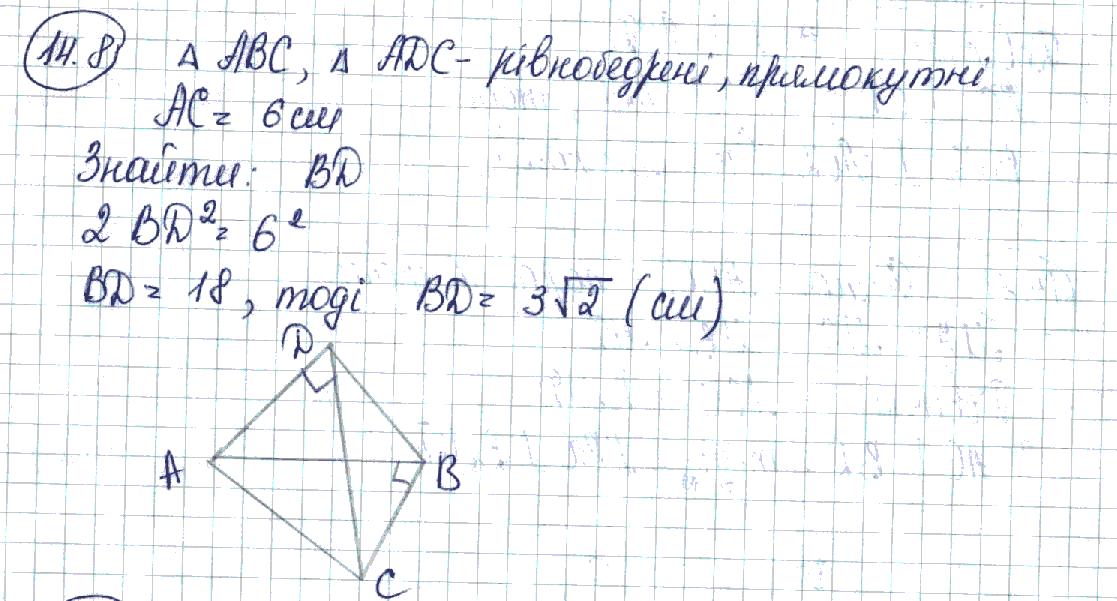 14.8) △ ABC, △ ADC - рівнобедрені, прямокутні
AC = 6 см
Знайти: BD
2 BD² = 6²
BD = 18, тоді BD = 3√2 (см)
D
A
B
C